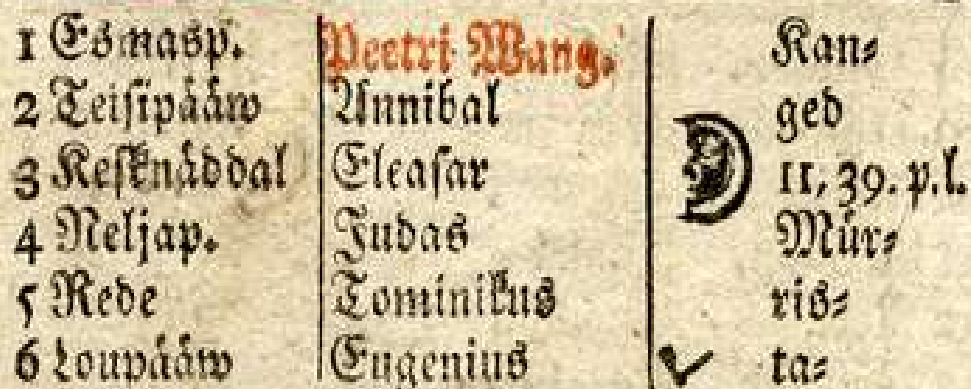 1 Esmasp. Peetri Wang. Kan⸗
2 Teisipääw Annibal ged
3 Kesknäddal Eleasar 11, 39. p. l.
4 Neljap. Judas Mür⸗
5 Rede Tominikus ris⸗
6 Loupääw Eugenius ta⸗